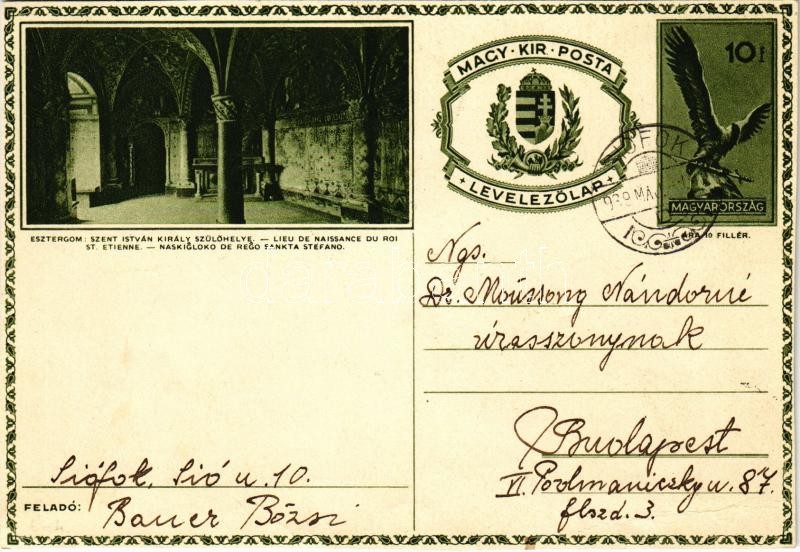 MAGY · KIR · POSTA
LEVELEZŐLAP
10 f
MAGYARORSZÁG
ÁRA 10 FILLÉR.
ESZTERGOM: SZENT ISTVÁN KIRÁLY SZÜLŐHELYE. — LIEU DE NAISSANCE DU ROI
ST. ETIENNE. — NASKIĜLOKO DE REĜO SANKTA STEFANO.
SIÓFOK
939 MÁJ
Ngs.
Dr. Moussong Nándorné
úrasszonynak
Budapest
VI. Podmaniczky u. 87.
flszd. 3.
Siófok, Sió u. 10.
FELADÓ: Bauer Bözsi